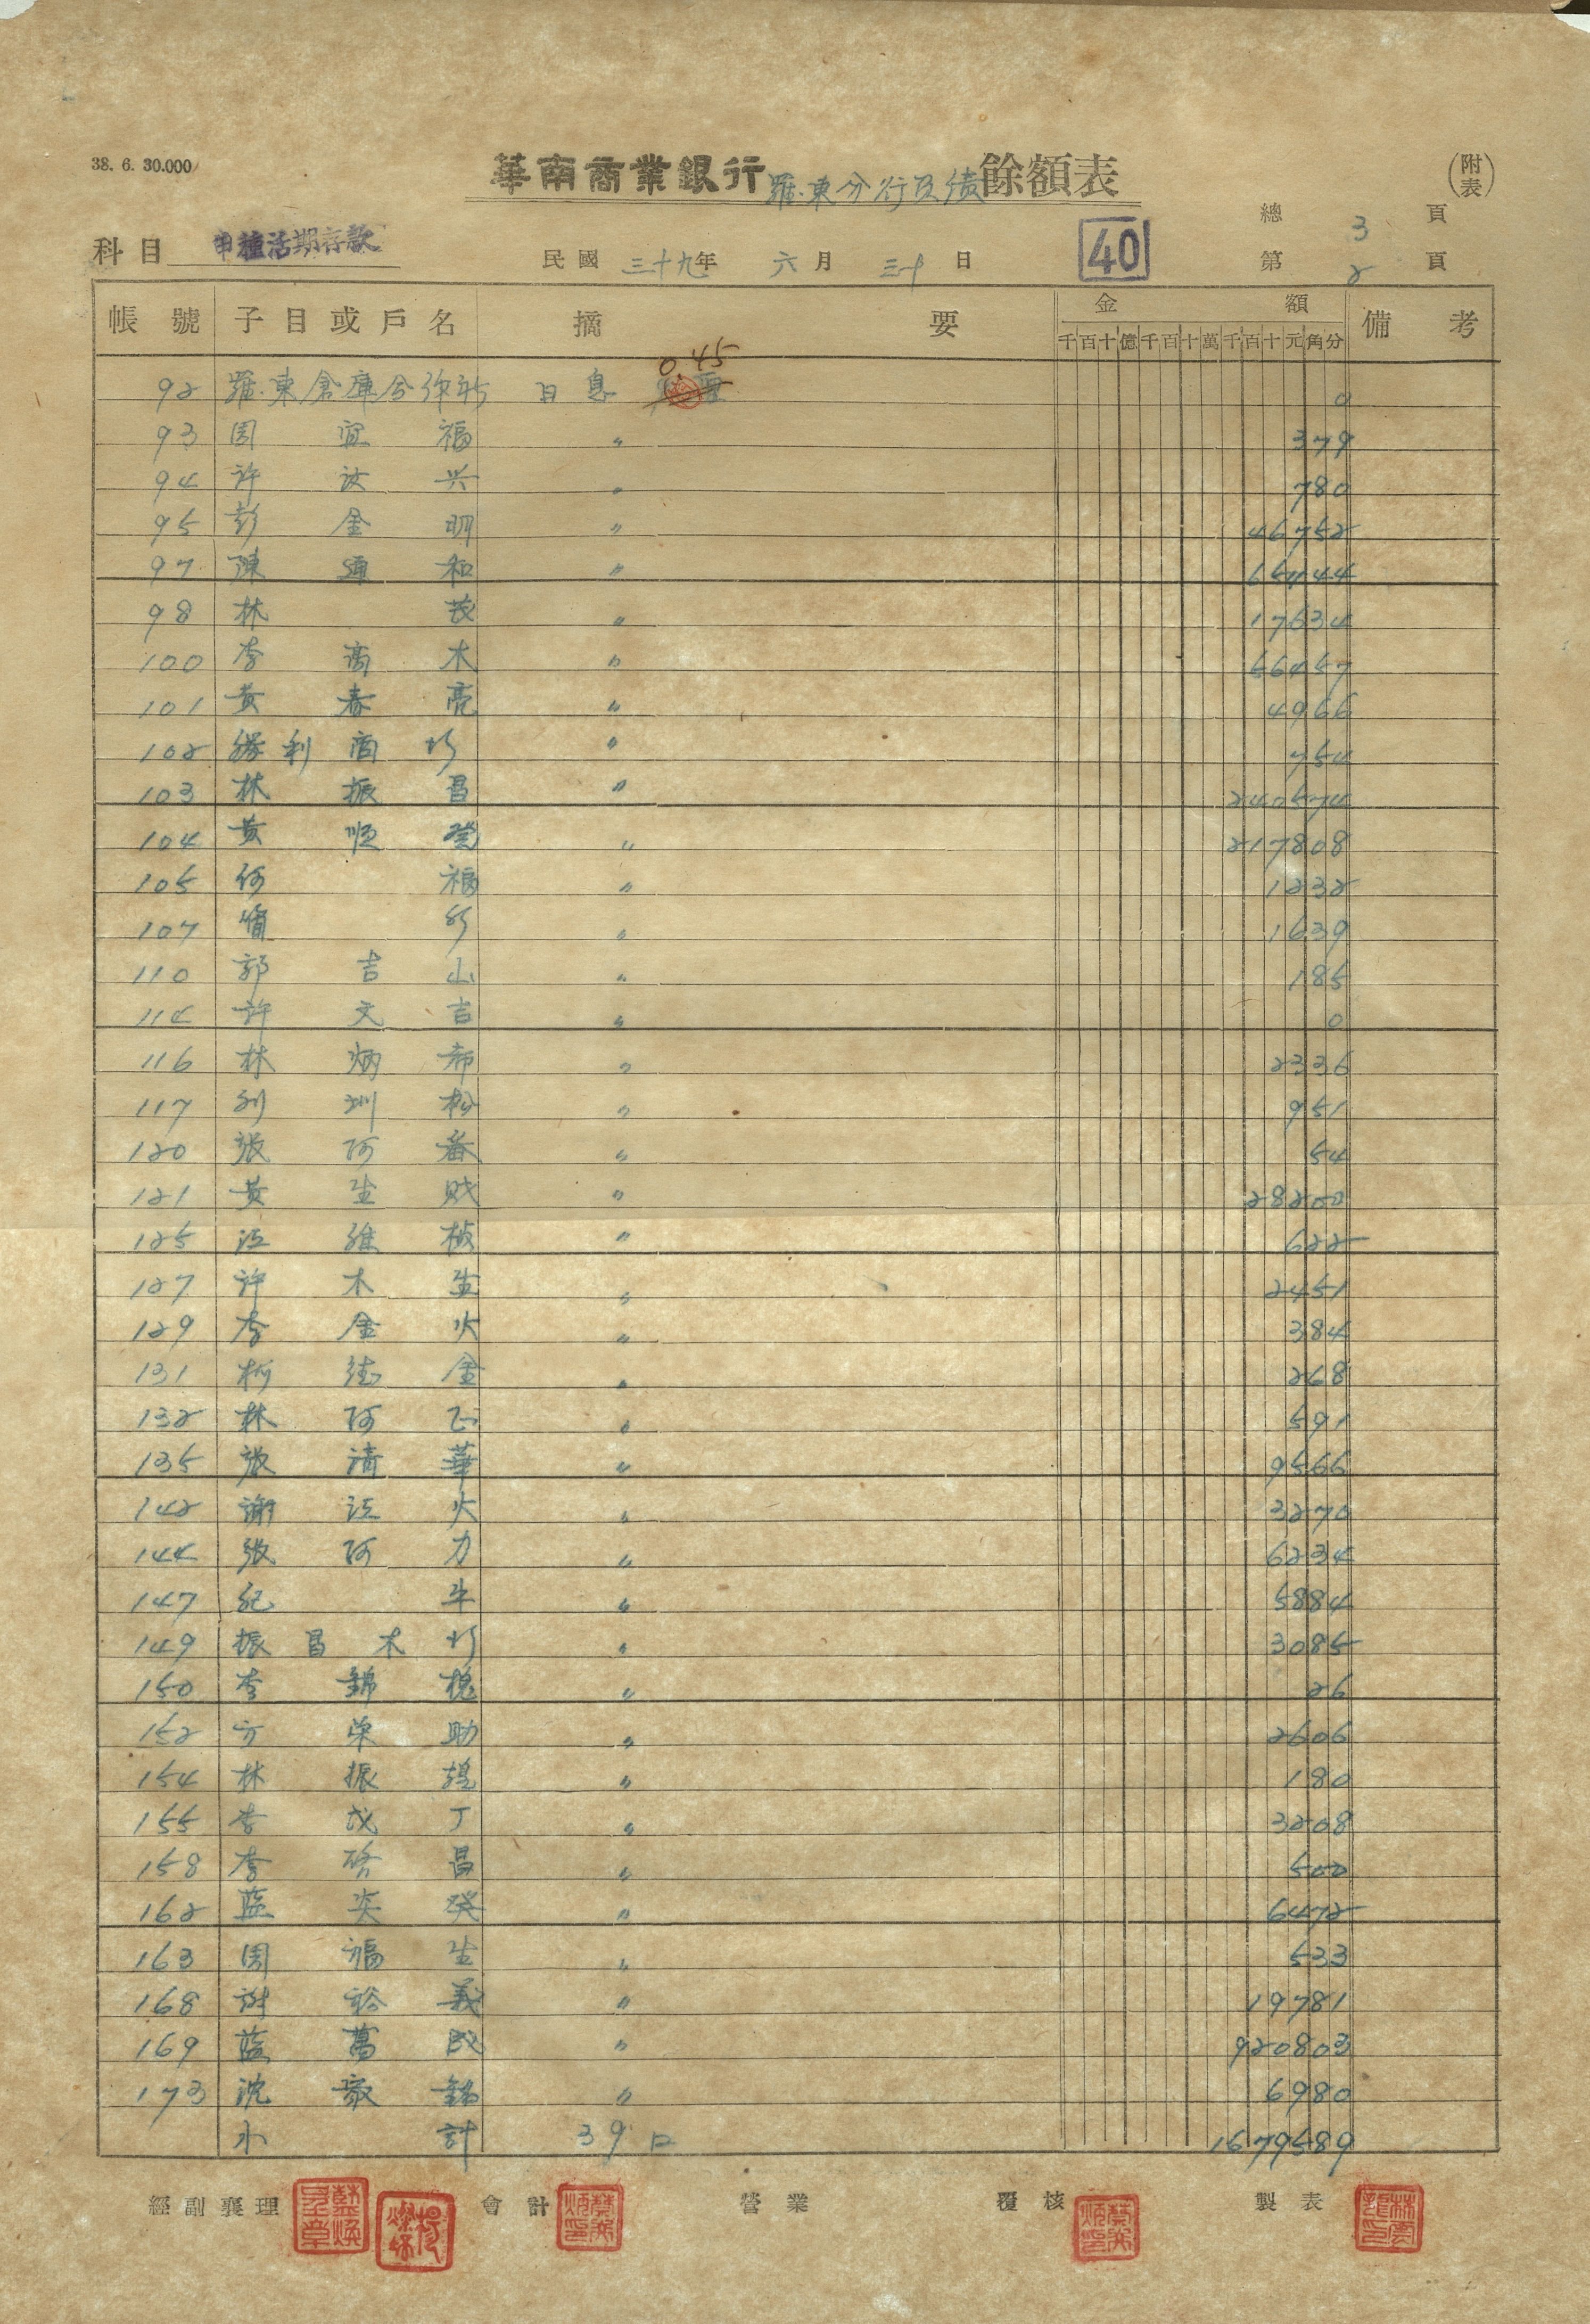 38. 6. 30.000
華南商業銀行羅東分行 餘額表
(附表)
總 3 頁
科目 甲種活期存款 民國 三十九年 六月 三十日 40 第 2 頁
帳號 子目或戶名 摘要 金額 備考
千百十億千百十萬千百十元角分
0.45
92 羅東倉庫 日息 0
93 周宜福 〃 379
94 許汝兴 〃 780
95 彭金明 〃 46752
97 陳通和 〃
98 林茂 〃 17634
100 李高木 〃 56457
101 黃春亮 〃 4966
102 勝利商行 〃 754
103 林振昌 〃 240574
104 黃順 〃 217808
105 何福 〃 1232
107 〃 1639
110 郭吉山 〃 185
114 許天吉 〃 0
116 林炳 〃 2336
117 劉圳松 〃 951
120 張阿番 〃 54
121 黃生財 〃 28200
125 江維楨 〃 622
127 許木生 〃 2451
129 李金火 〃 384
131 柯金 〃 268
132 林阿 〃 591
135 張清華 〃 9566
142 謝江火 〃 3270
144 張阿力 〃 6234
147 紀牛 〃 5884
149 振昌木行 〃 3085
150 李錦槐 〃 26
152 方榮助 〃 2606
154 林振 〃 180
155 李成丁 〃 3208
158 李啓昌 〃 500
162 藍炎癸 〃 6472
163 周福生 〃 533
168 謝裕義 〃 19781
169 藍萬成 〃 920803
173 沈家銘 〃 6980
小計 39口 1679589
經副襄理 會計 營業 覆核 製表